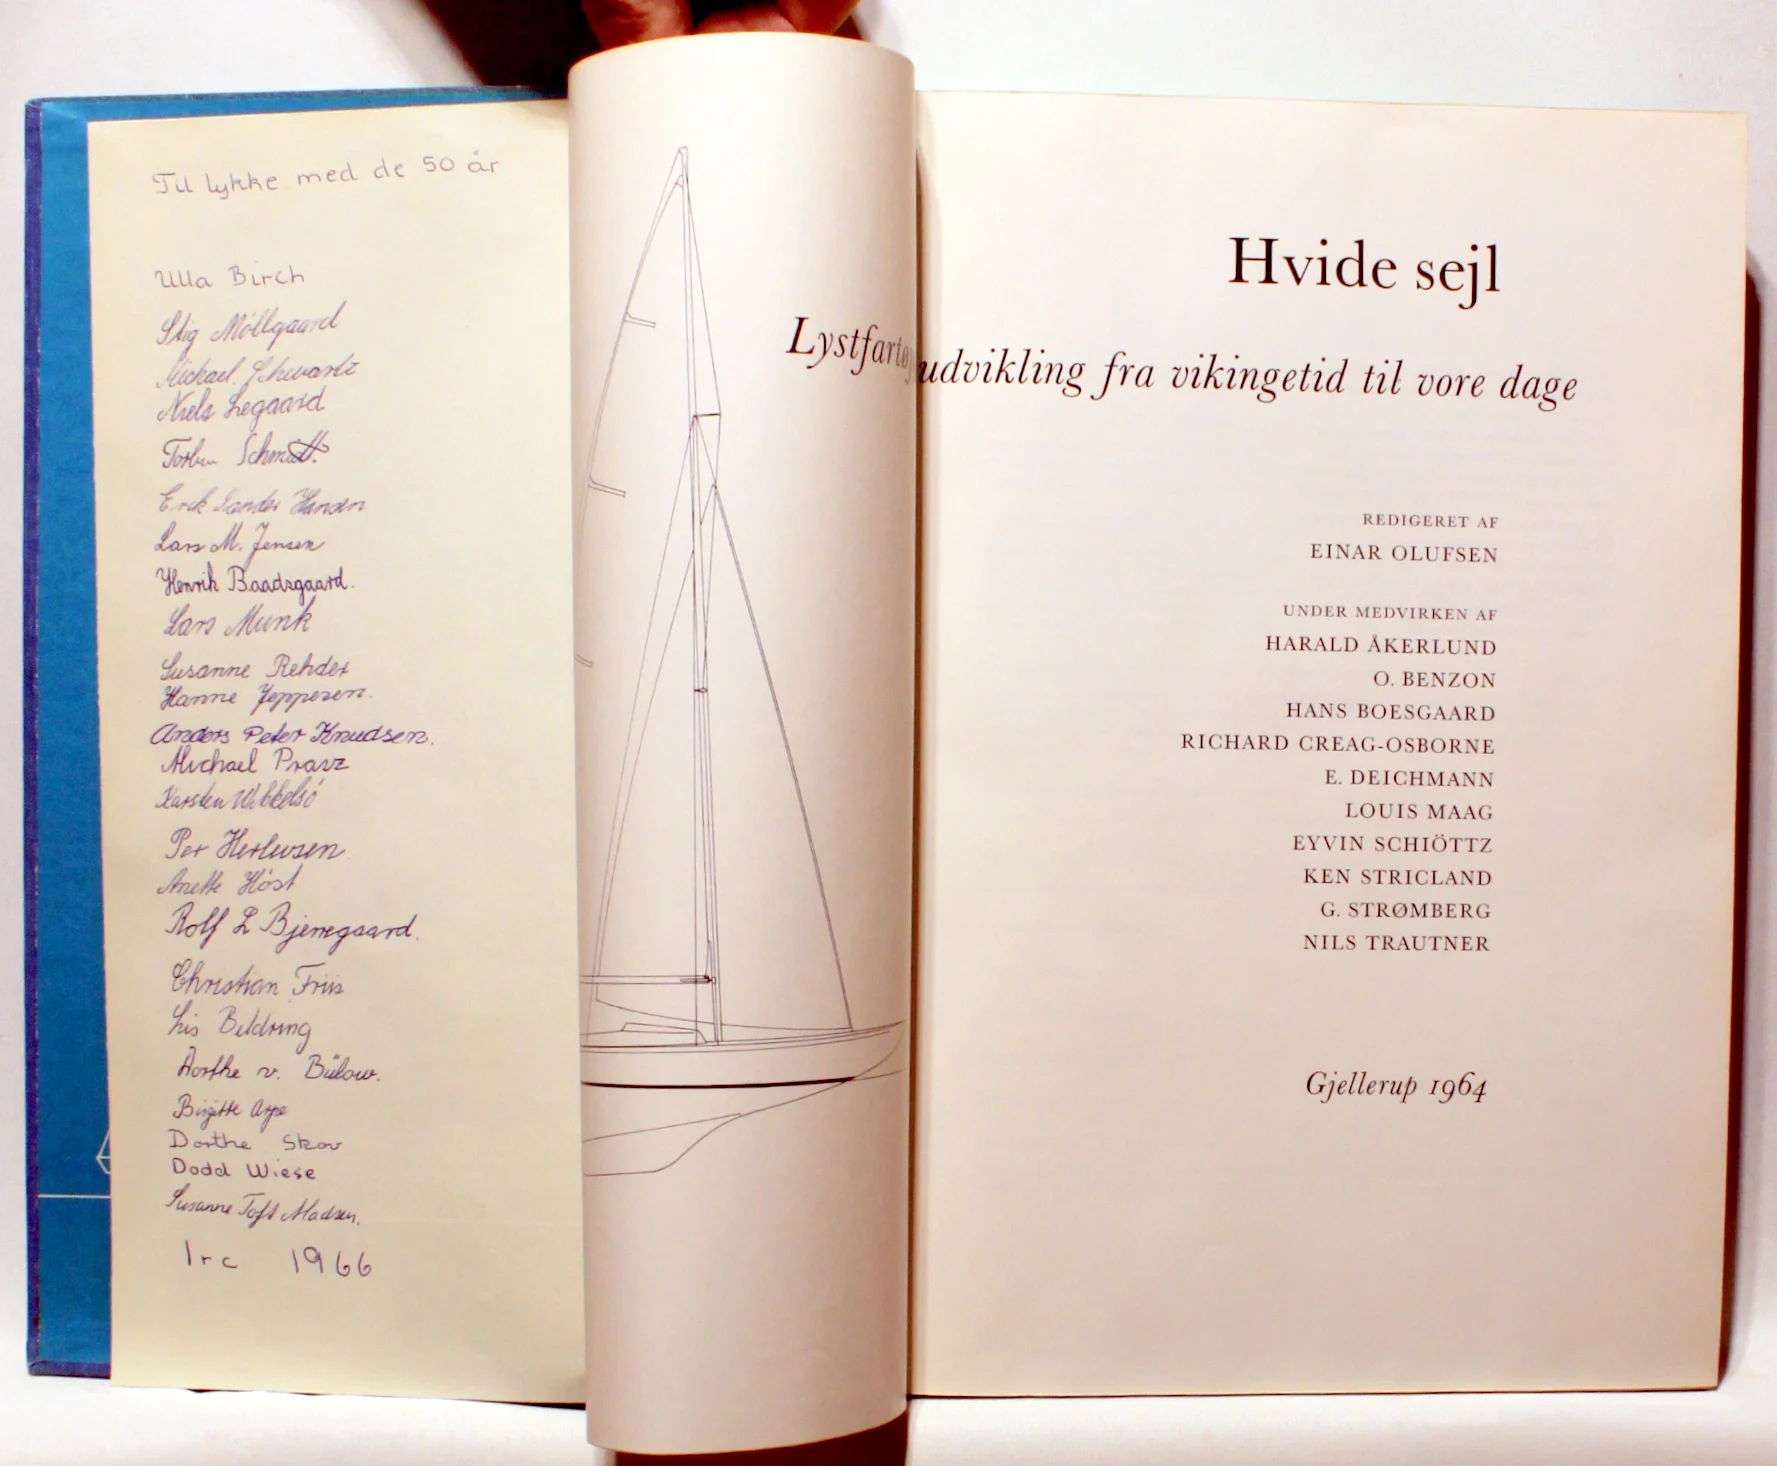 Til lykke med de 50 år
Ulla Birch
Stig Möllgaard
Michael Schwartz
Niels Legaard
Torben
Erik Sander Hansen
Lars M. Jensen
Henrik Baadsgaard.
Lars Munk
Susanne Rehder
Hanne Jeppesen.
Anders Peter Knudsen.
Michael Pravz
Karsten Wibbelsö
Per Herluvsen
Anette Höst
Rolf L Bjerregaard.
Christian Friis
Lis Beldring
Dorthe v. Bülow.
Birgitte Arpe
Dorthe Skov
Dodd Wiese
Susanne Toft Madsen.
1rc 1966
Hvide sejl
udvikling fra vikingetid til vore dage
REDIGERET AF
EINAR OLUFSEN
UNDER MEDVIRKEN AF
HARALD ÅKERLUND
O. BENZON
HANS BOESGAARD
RICHARD CREAG-OSBORNE
E. DEICHMANN
LOUIS MAAG
EYVIN SCHIÖTTZ
KEN STRICLAND
G. STRØMBERG
NILS TRAUTNER
Gjellerup 1964